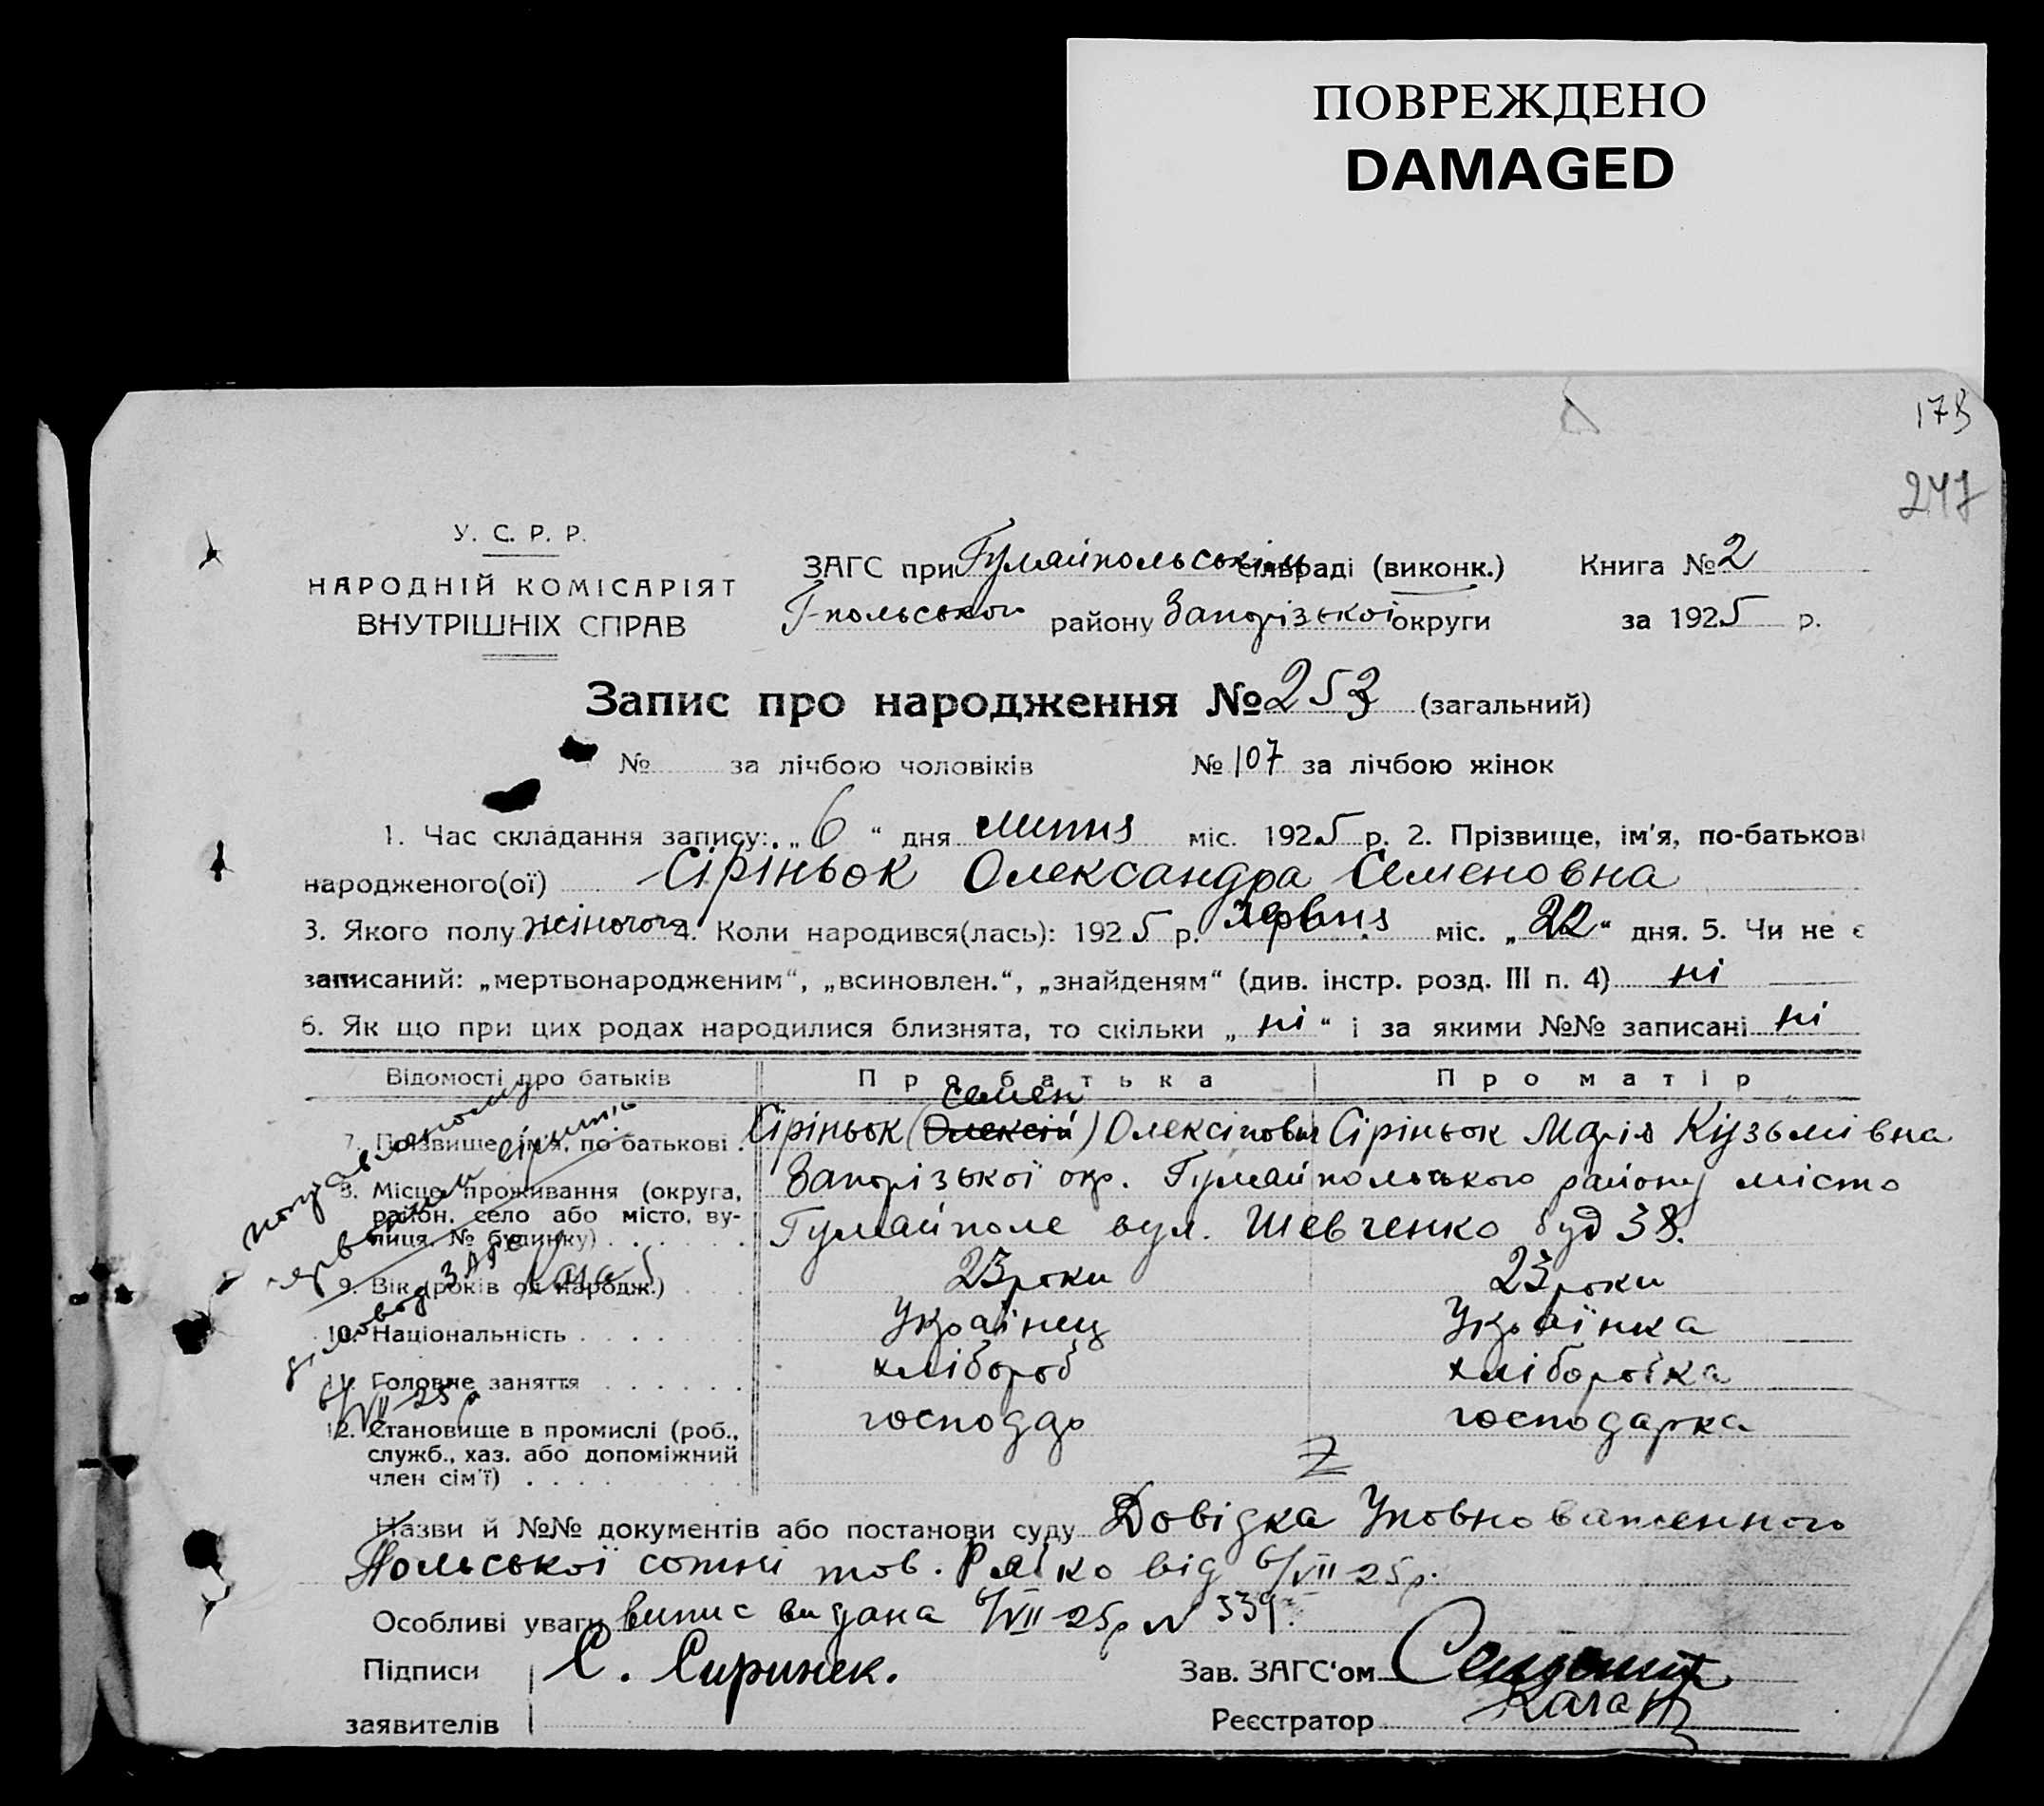 ПОВРЕЖДЕНО
DAMAGED
173
247
У. С. Р. Р.
НАРОДНІЙ КОМІСАРІЯТ
ВНУТРІШНІХ СПРАВ
ЗАГС при Гуляйпольськім сільраді (виконк.) Книга № 2
Г-польського району Запорізької округи за 1925 р.
Запис про народження № 253 (загальний)
№ за лічбою чоловіків № 107 за лічбою жінок
1. Час складання запису: „6“ дня липня міс. 1925 р. 2. Прізвище, ім'я, по-батькові
народженого(ої) Сіріньок Олександра Семеновна
3. Якого полу жіночого 4. Коли народився(лась): 1925 р. червня міс. „22“ дня. 5. Чи не є
записаний: „мертвонародженим“, „всиновлен.“, „знайденям“ (див. інстр. розд. III п. 4) ні
6. Як що при цих родах народилися близнята, то скільки „ні“ і за якими №№ записані ні
Відомості про батьків Про батька Про матір
Семен
7. Прізвище, ім'я, по батькові . Сіріньок (Олексій) Олексіпович Сіріньок Марія Кузьмівна
8. Місце проживання (округа, район, село або місто, вулиця, № будинку) Запорізької окр. Гуляйпольського району місто
Гуляйполе вул. Шевченко буд 38.
9. Вік (років од народж.) 23 роки 23 роки
10. Національність Українец Українка
11. Головне заняття хлібороб хліборобка
12. Становище в промислі (роб., служб., хаз. або допоміжний член сім'ї) господар господарка
6/VII-25р
Назви й №№ документів або постанови суду Довідка Уповноваженного
Польської сотні тов. від 6/VII-25р.
Особливі уваги випис видана 6/VII-25р № 339
Підписи С. Сиринек. Зав. ЗАГС'ом
заявителів Реєстратор